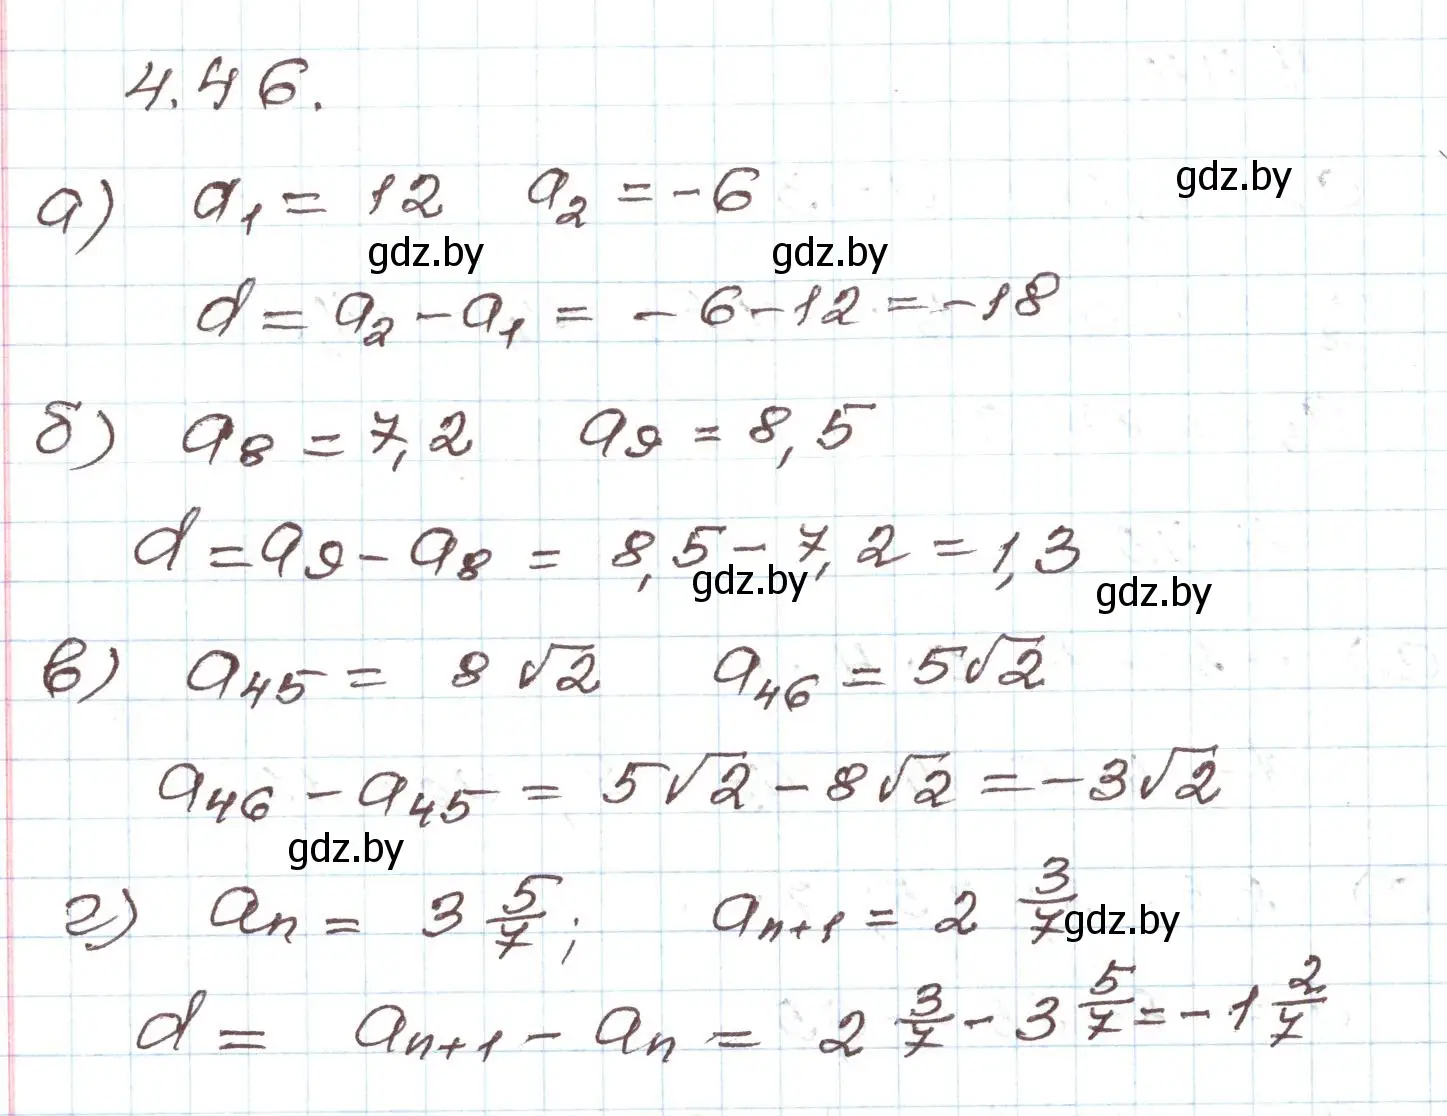 4.46.
gdz.by
а) a₁ = 12 a₂ = -6
gdz.by gdz.by
d = a₂ - a₁ = -6-12 = -18
б) a₈ = 7,2 a₉ = 8,5
d = a₉ - a₈ = 8,5 - 7,2 = 1,3
gdz.by gdz.by
в) a₄₅ = 8√2 a₄₆ = 5√2
a₄₆ - a₄₅ = 5√2 - 8√2 = -3√2
gdz.by
г) aₙ = 3 5/7; aₙ₊₁ = 2 3/7
gdz.by
d = aₙ₊₁ - aₙ = 2 3/7 - 3 5/7 = -1 2/7